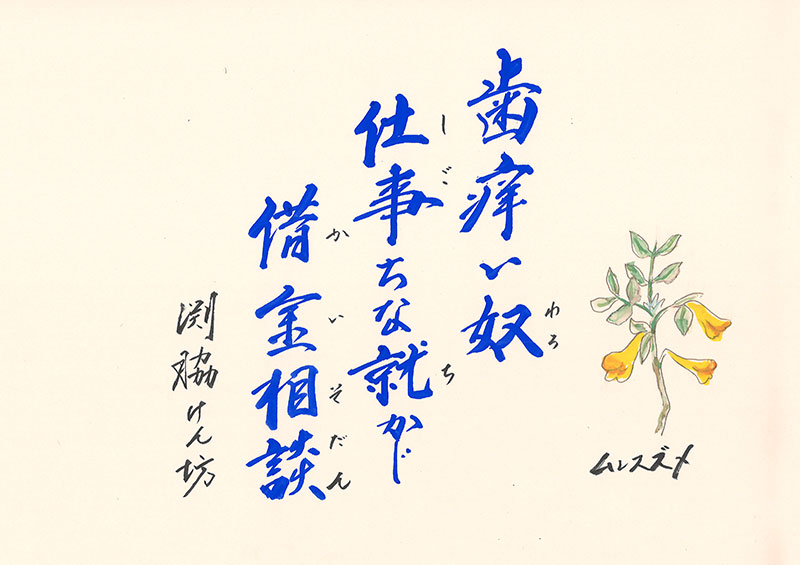 歯痒い奴
わろ
仕事ちな就かじ
しご ち
借金相談
かいそだん
渕脇けん坊
ムレスズメ